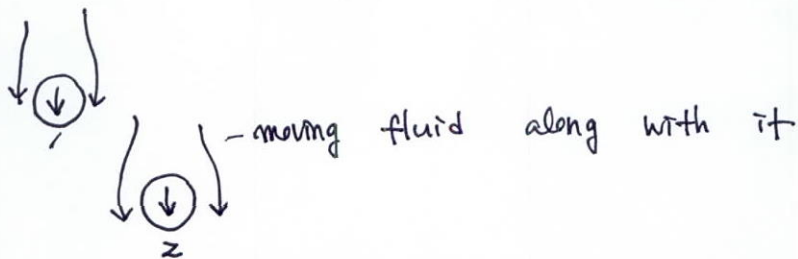 1
– moving fluid along with it
2